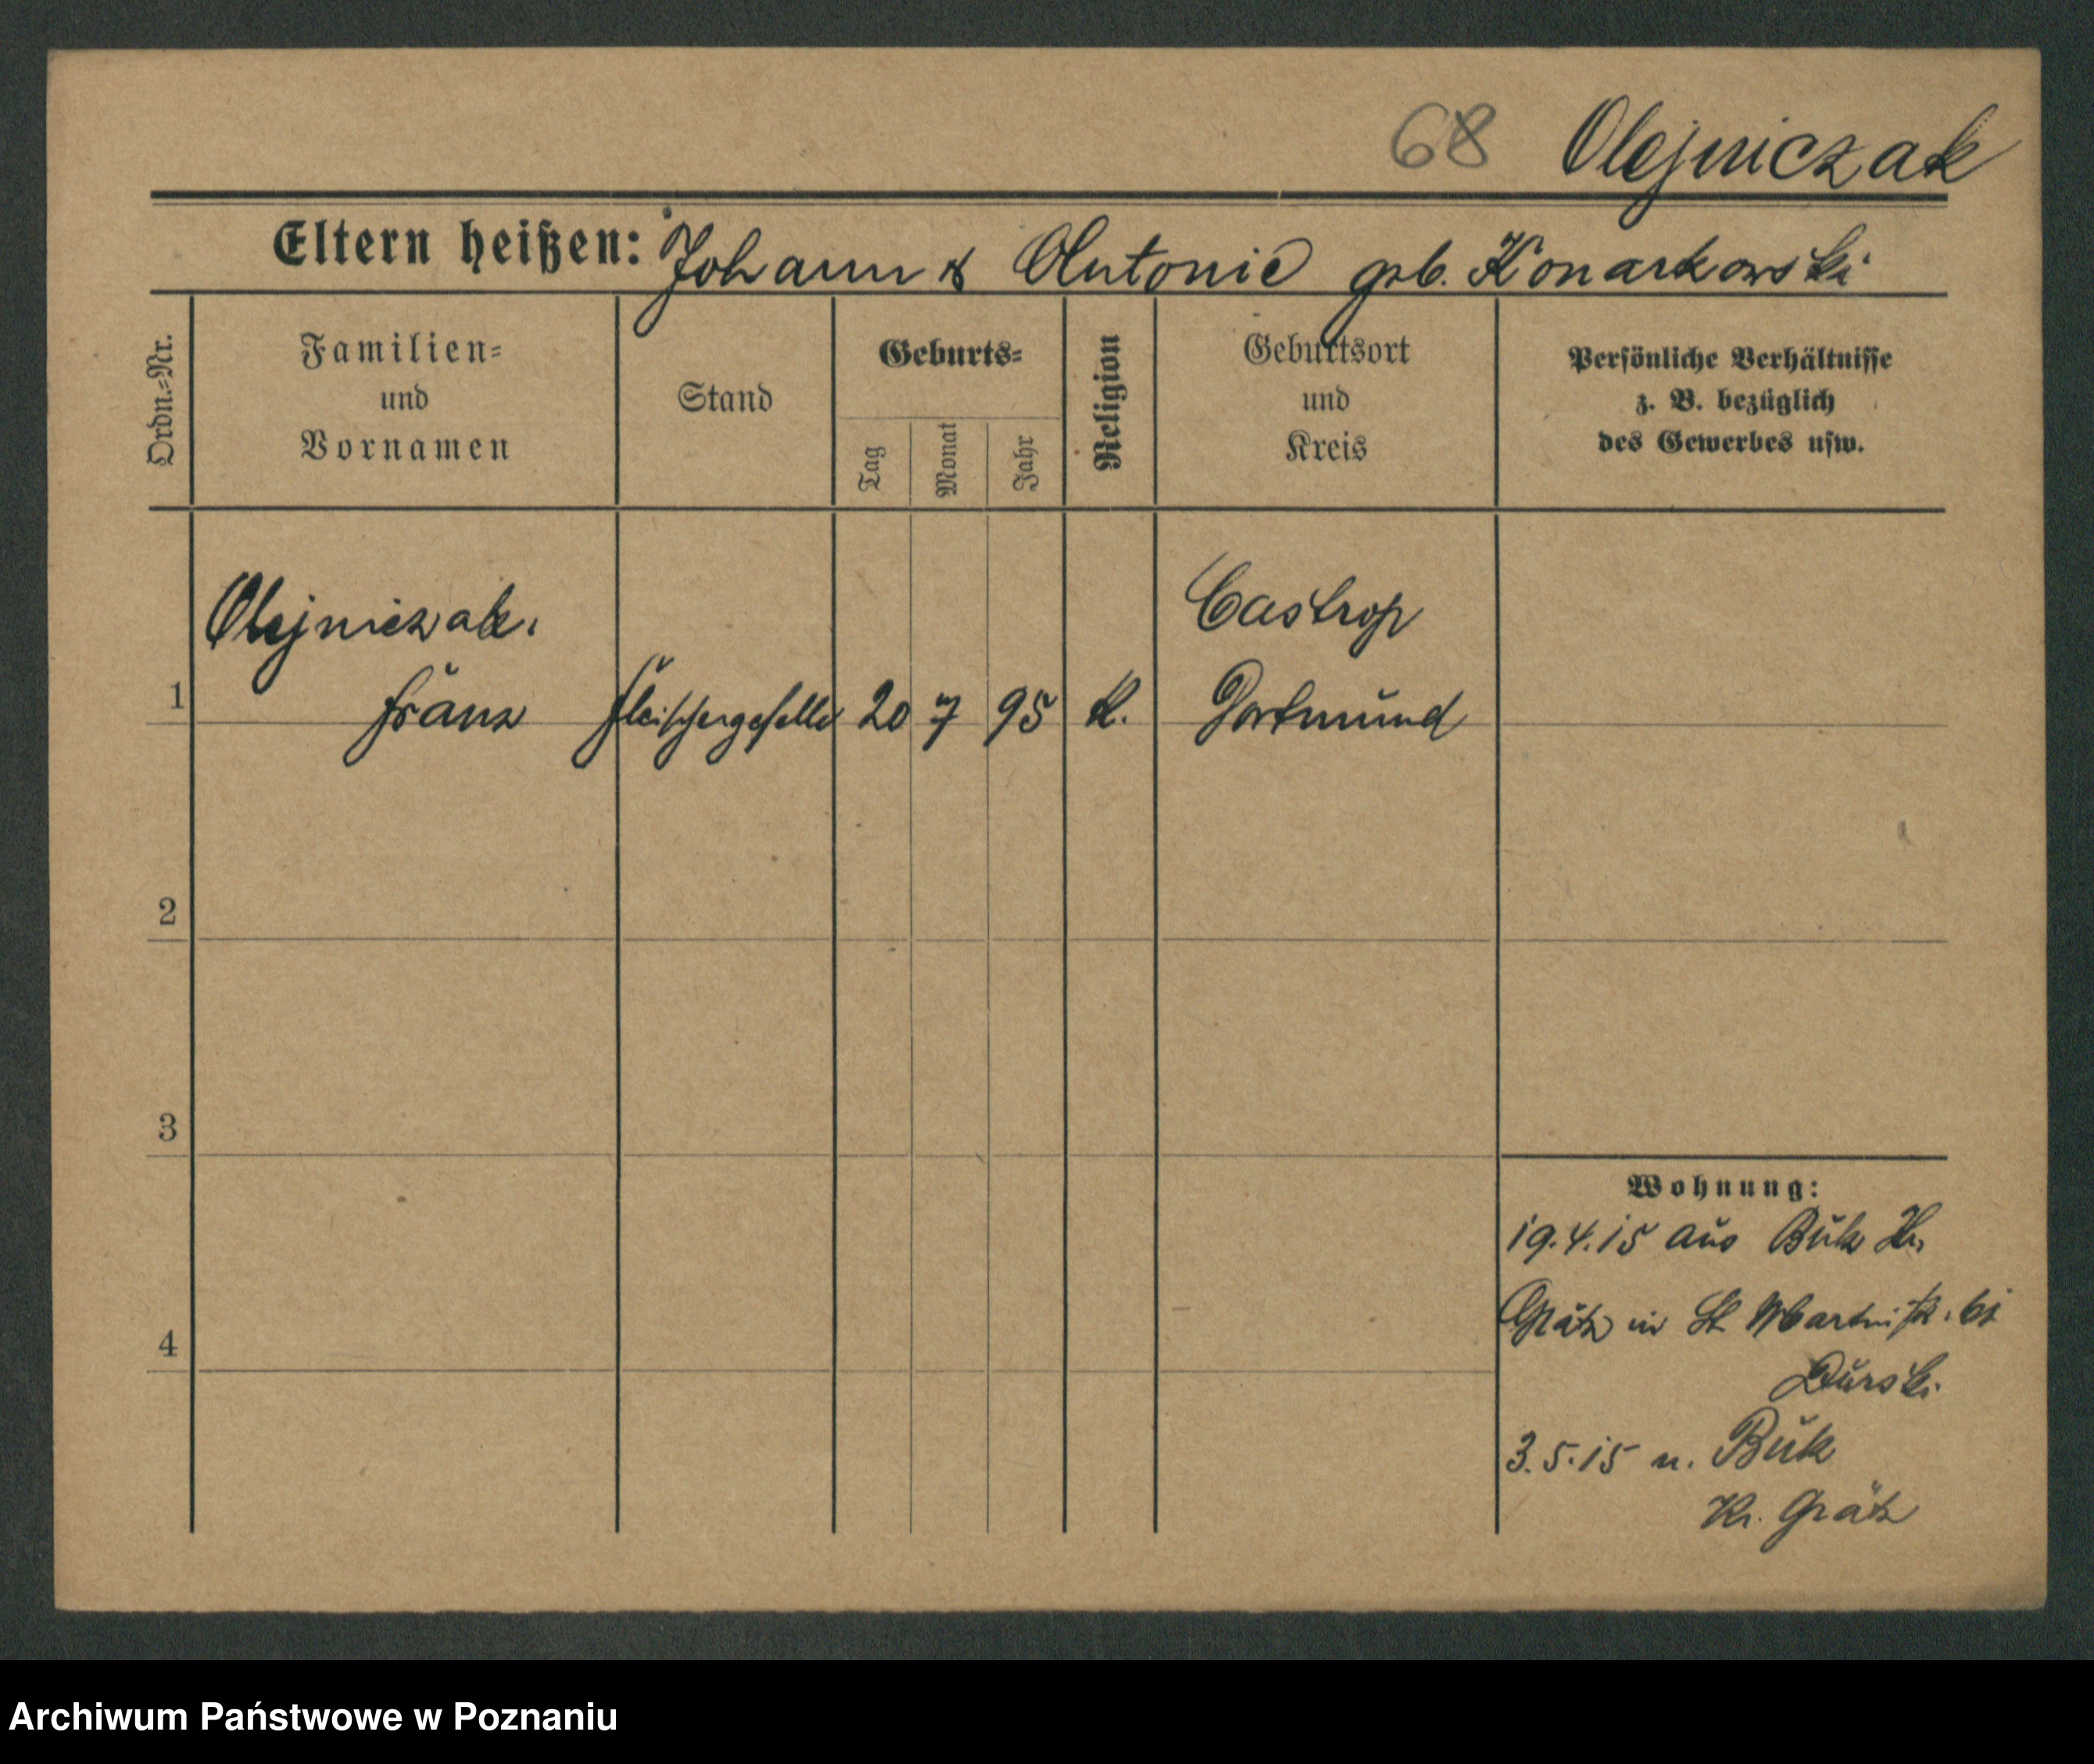 68 Olejniczak
Eltern heißen: Johann & Antonie geb. Konarkowski
Ordn.-Nr.
Familien-
und
Vornamen
Stand
Geburts-
Tag
Monat
Jahr
Religion
Geburtsort
und
Kreis
Persönliche Verhältnisse
z. B. bezüglich
des Gewerbes usw.
Olejniczak.
Castrop
1 Franz Fleischergeselle 20 7 95 K. Dortmund
2
3
4
Wohnung:
19.4.15 aus Buk Kr.
Grätz in St Martinstr. bi
Durski
3.5.15 n. Buk
Kr. Grätz
Archiwum Państwowe w Poznaniu